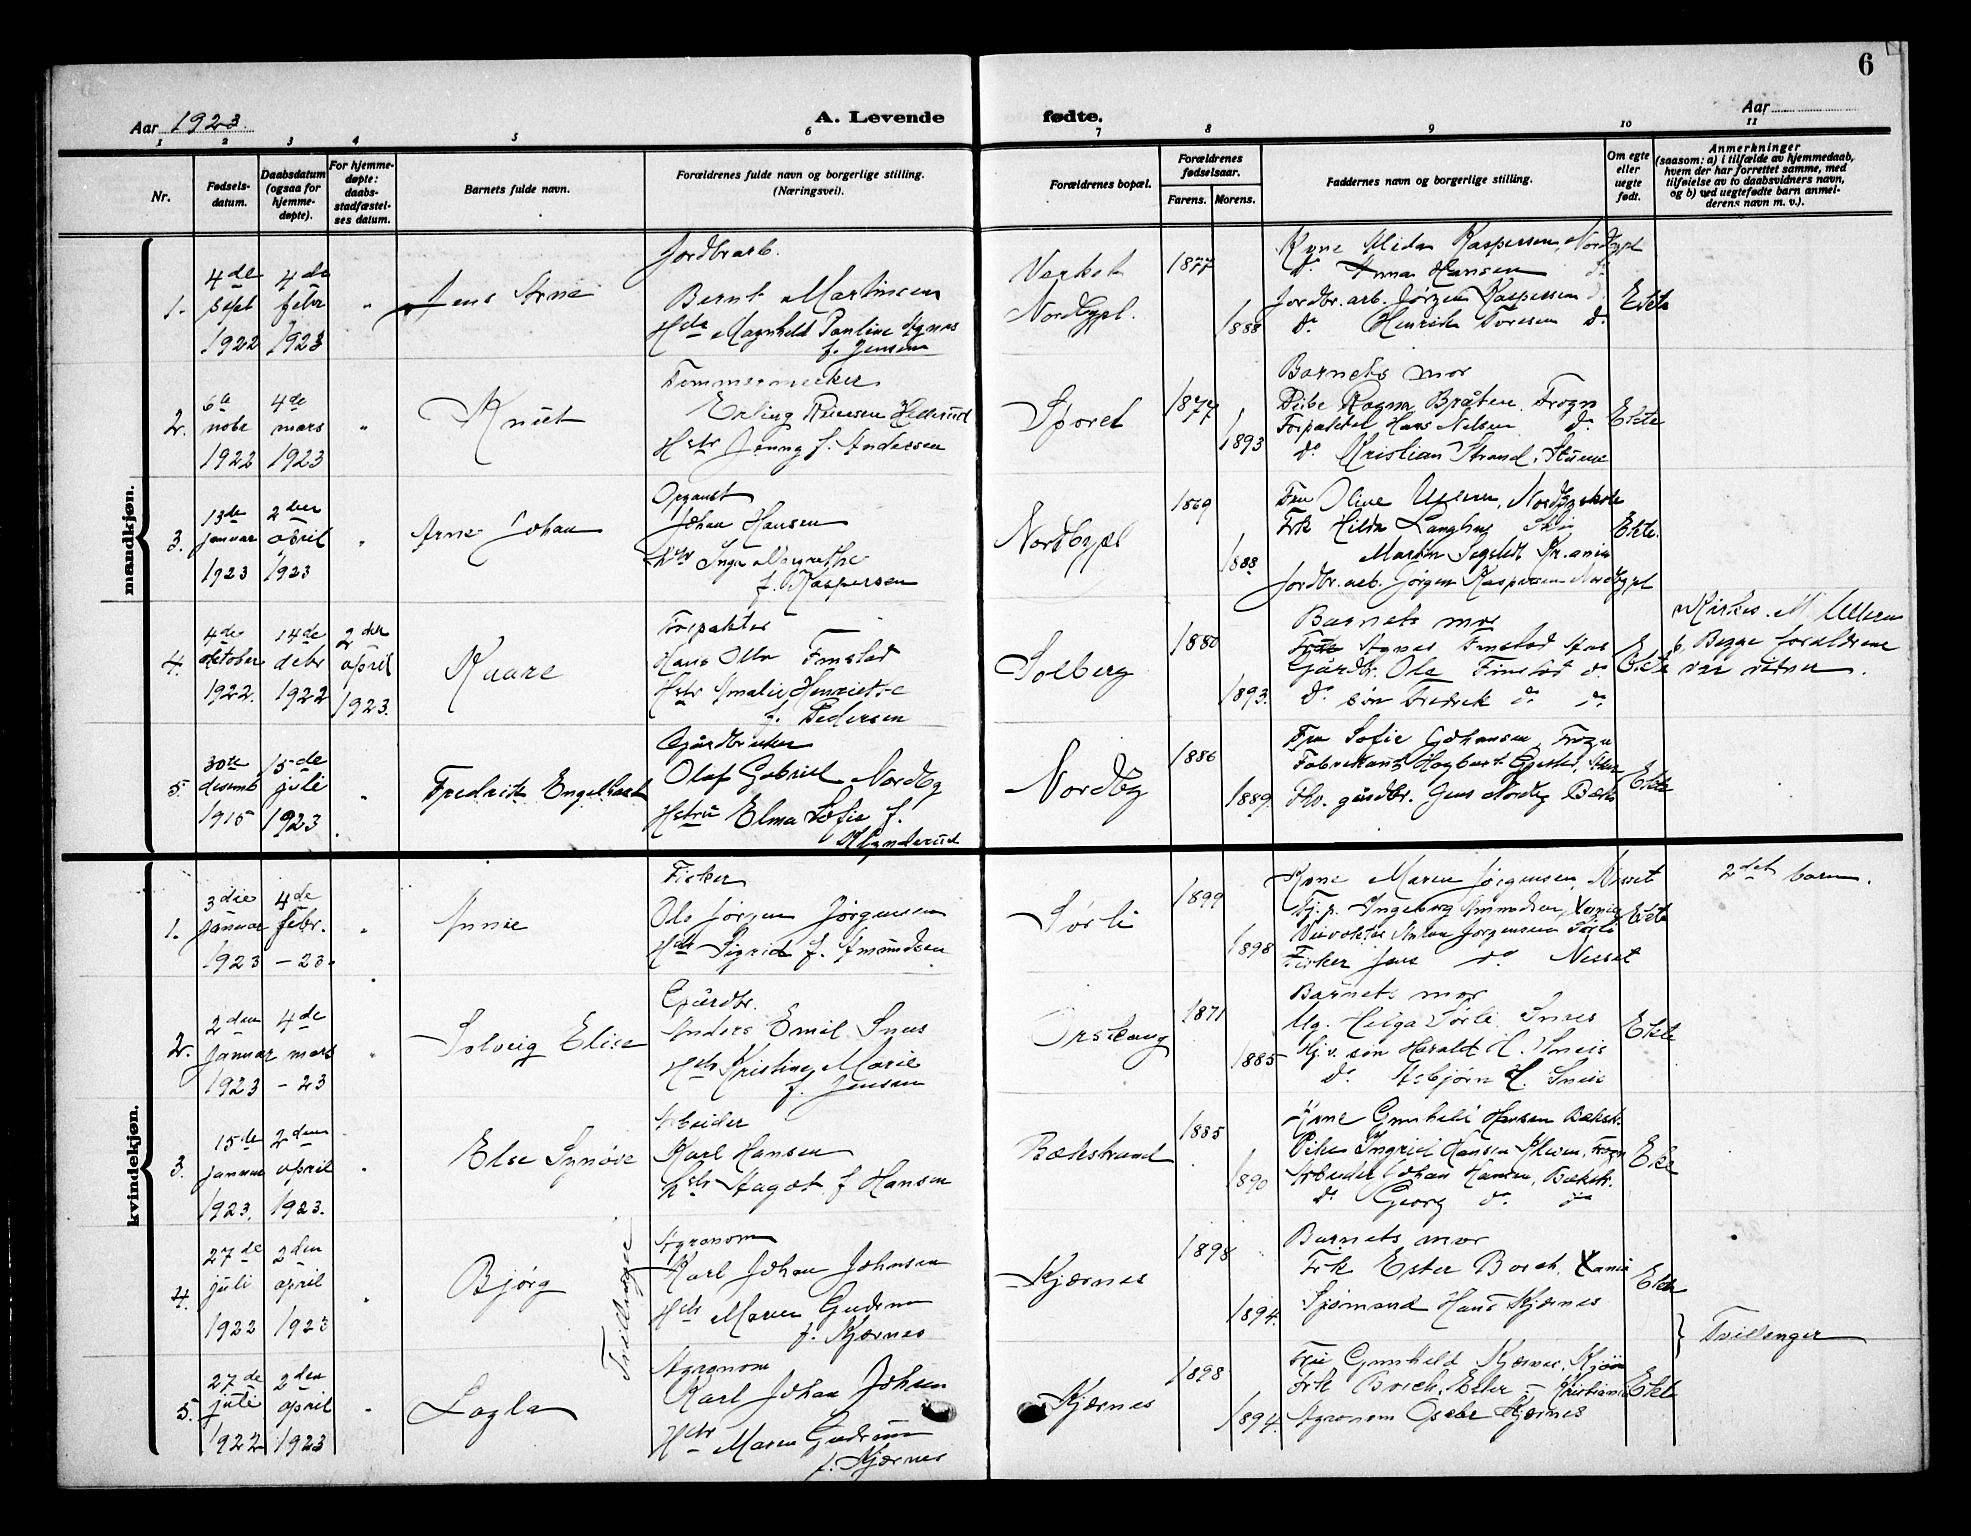 6
Aar 1923.
A. Levende
fødte.
Aar
1 2 3 4 5 6 7 8 9 10 11
Nr.
Fødsels-
datum.
Daabsdatum
(ogsaa for
hjemme-
døpte).
For hjemme-
døpte:
daabs-
stadfæstel-
ses datum.
Barnets fulde navn.
Forældrenes fulde navn og borgerlige stilling.
(Næringsvei).
Forældrenes bopæl.
Forældrenes
fødselsaar.
Farens. Morens.
Faddernes navn og borgerlige stilling.
Om egte
eller
uegte
født.
Anmerkninger
(saasom: a) i tilfælde av hjemmedaab,
hvem der har forrettet samme, med
tilføielse av to daabsvidners navn,
og b) ved uegtefødte barn anmel-
derens navn m. v.).
mandkjøn.
1.
4de
sept
1922
4de
febr
1923
"
Jens Arne
Jordbrarb.
Bernt Martinsen
Hstr Magnhild Pauline Agnes
f. Jensen
Nordbypl.
1877
1888
Kone Kaspersen, Nordbypl
do Anna Hansen do
Jordbr. arb. Jørgen Kaspersen d.
do Henrik Toresen do
Ekte
2.
6te
nobr
1922
4de
mars
1923
"
Knut
Tømmermerker
Erling
Hstr Jenny f. Andersen
Sporet
1877
1893
Barnets mor
Pike Ragna Bråten, Frogn
Forpakter Hans Nelsen do
do Kristian Strand,
Ekte
3.
13de
januar
1923
2den
april
1923
"
Arne Johan
Organist
Johan Hansen
Hstr Inga Margrethe
f. Kaspersen
Nordbypl
1869
1888
Fru Olive Ullern, Nordby skole
Frk Hilda Langhus Ski
Martin Kr.ania
Jordbr. arb. Jørgen Kaspersen Nordbypl
Ekte.
4.
4de
oktober
1922.
14de
debr
1922
2den
april
1923.
Kaare
Forpakter
Hans Olav Finstad
Hstr Amalie Henriette
f. Pedersen
Solberg
1880
1893.
Barnets mor
Agnes Finstad Aas
Gårdbr. Ole Finstad do
do søn Fredrik do do
Ekte
Kirkes. M. Ullern
b. Begge foraldrene
var vidner.
5.
30te
desemb
1915
15de
juli
1923
"
Fredrik Engelhart
Gårdbruker
Olaf Gabriel Nordby
Hstru Elma Sofie f.
Nordby
1886
1889.
Fru Sofie Johansen, Frogn
Fabrikant
Fhv. gårdbr. Jens Nordby Bæk
Ekte
kvindekjøn.
1.
3die
januar
1923
4de
febr.
– 23.
"
Annie
Fisker
Ole Jørgen Jørgensen
Hstr Sigrid f. Amundsen
Sørli
1899
1898
Kone Maren Jørgensen, Nesset
Tj.p. Ingeborg Amundsen, Xania
Veivokter Anton Jørgensen Sørli
Fisker Jens do Nesset
Ekte
2det barn.
2.
2den
januar
1923
4de
mars
– 23
"
Solveig Elise
Gårdbr.
Anders Emil Sneis
Hstr Kristine Marie
f. Jensen
Orskaug
1871
1885
Barnets mor
Ug. Helga Sørli Sneis
Hj.v. søn Harald H. Sneis
do Asbjørn H. Sneis
Ekte
3.
15de
januar
1923.
2den
april
1923.
"
Else Synøve
Arbeider
Karl Hansen
Hstr Aagot f Hansen
Bækstrand
1885
1890
Kone Gunhild Hansen Bækstr.
Piken Ingrid Hansen Skuen, Frogn
Arbeider Johan Hansen, Bækstr.
do Georg do do
Ekte
4.
27de
juli
1922
2den
april
1923
"
Bjørg
Tvillinger
Agronom
Karl Johan Johnsen
Hstr Maren Gudrun
f. Kjærnes
Kjærnes
1898
1894.
Barnets mor
Frk Ester Bosch, Xania
Sjømand Hans Kjærnes
Ekte
} Tvillenger
5.
27de
juli
1922
2den
april
1923
"
Laila
Agronom
Karl Johan Johsen
Hstr Maren Gudrun
f. Kjærnes
Kjærnes
1898
1894.
Fru Gunhild Kjærnes,
Frk Bosch, Ester – Kristiania
Agronom Oscar Kjærnes
Ekte